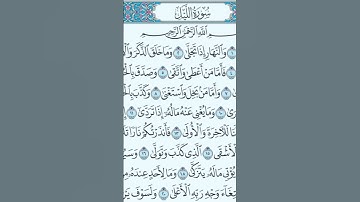 سُورَةُ اللَّيْلِ
بِسْمِ اللَّهِ الرَّحْمَٰنِ الرَّحِيمِ
وَالنَّهَارِ إِذَا تَجَلَّىٰ ٢ وَمَا خَلَقَ الذَّكَرَ
فَأَمَّا مَنْ أَعْطَىٰ وَاتَّقَىٰ ٥ وَصَدَّقَ
وَأَمَّا مَنۢ بَخِلَ وَاسْتَغْنَىٰ ٨ وَكَذَّبَ
وَمَا يُغْنِي عَنْهُ مَالُهُ إِذَا تَرَدَّىٰ ١١
نَا لَلْآخِرَةَ وَالْأُولَىٰ ١٣ فَأَنذَرْتُكُمْ نَارًا
الْأَشْقَى ١٥ الَّذِي كَذَّبَ وَتَوَلَّىٰ ١٦
يُؤْتِي مَالَهُ يَتَزَكَّىٰ ١٨ وَمَا لِأَحَدٍ عِندَهُ مِن
تِغَاءَ وَجْهِ رَبِّهِ الْأَعْلَىٰ ٢٠ وَلَسَوْفَ